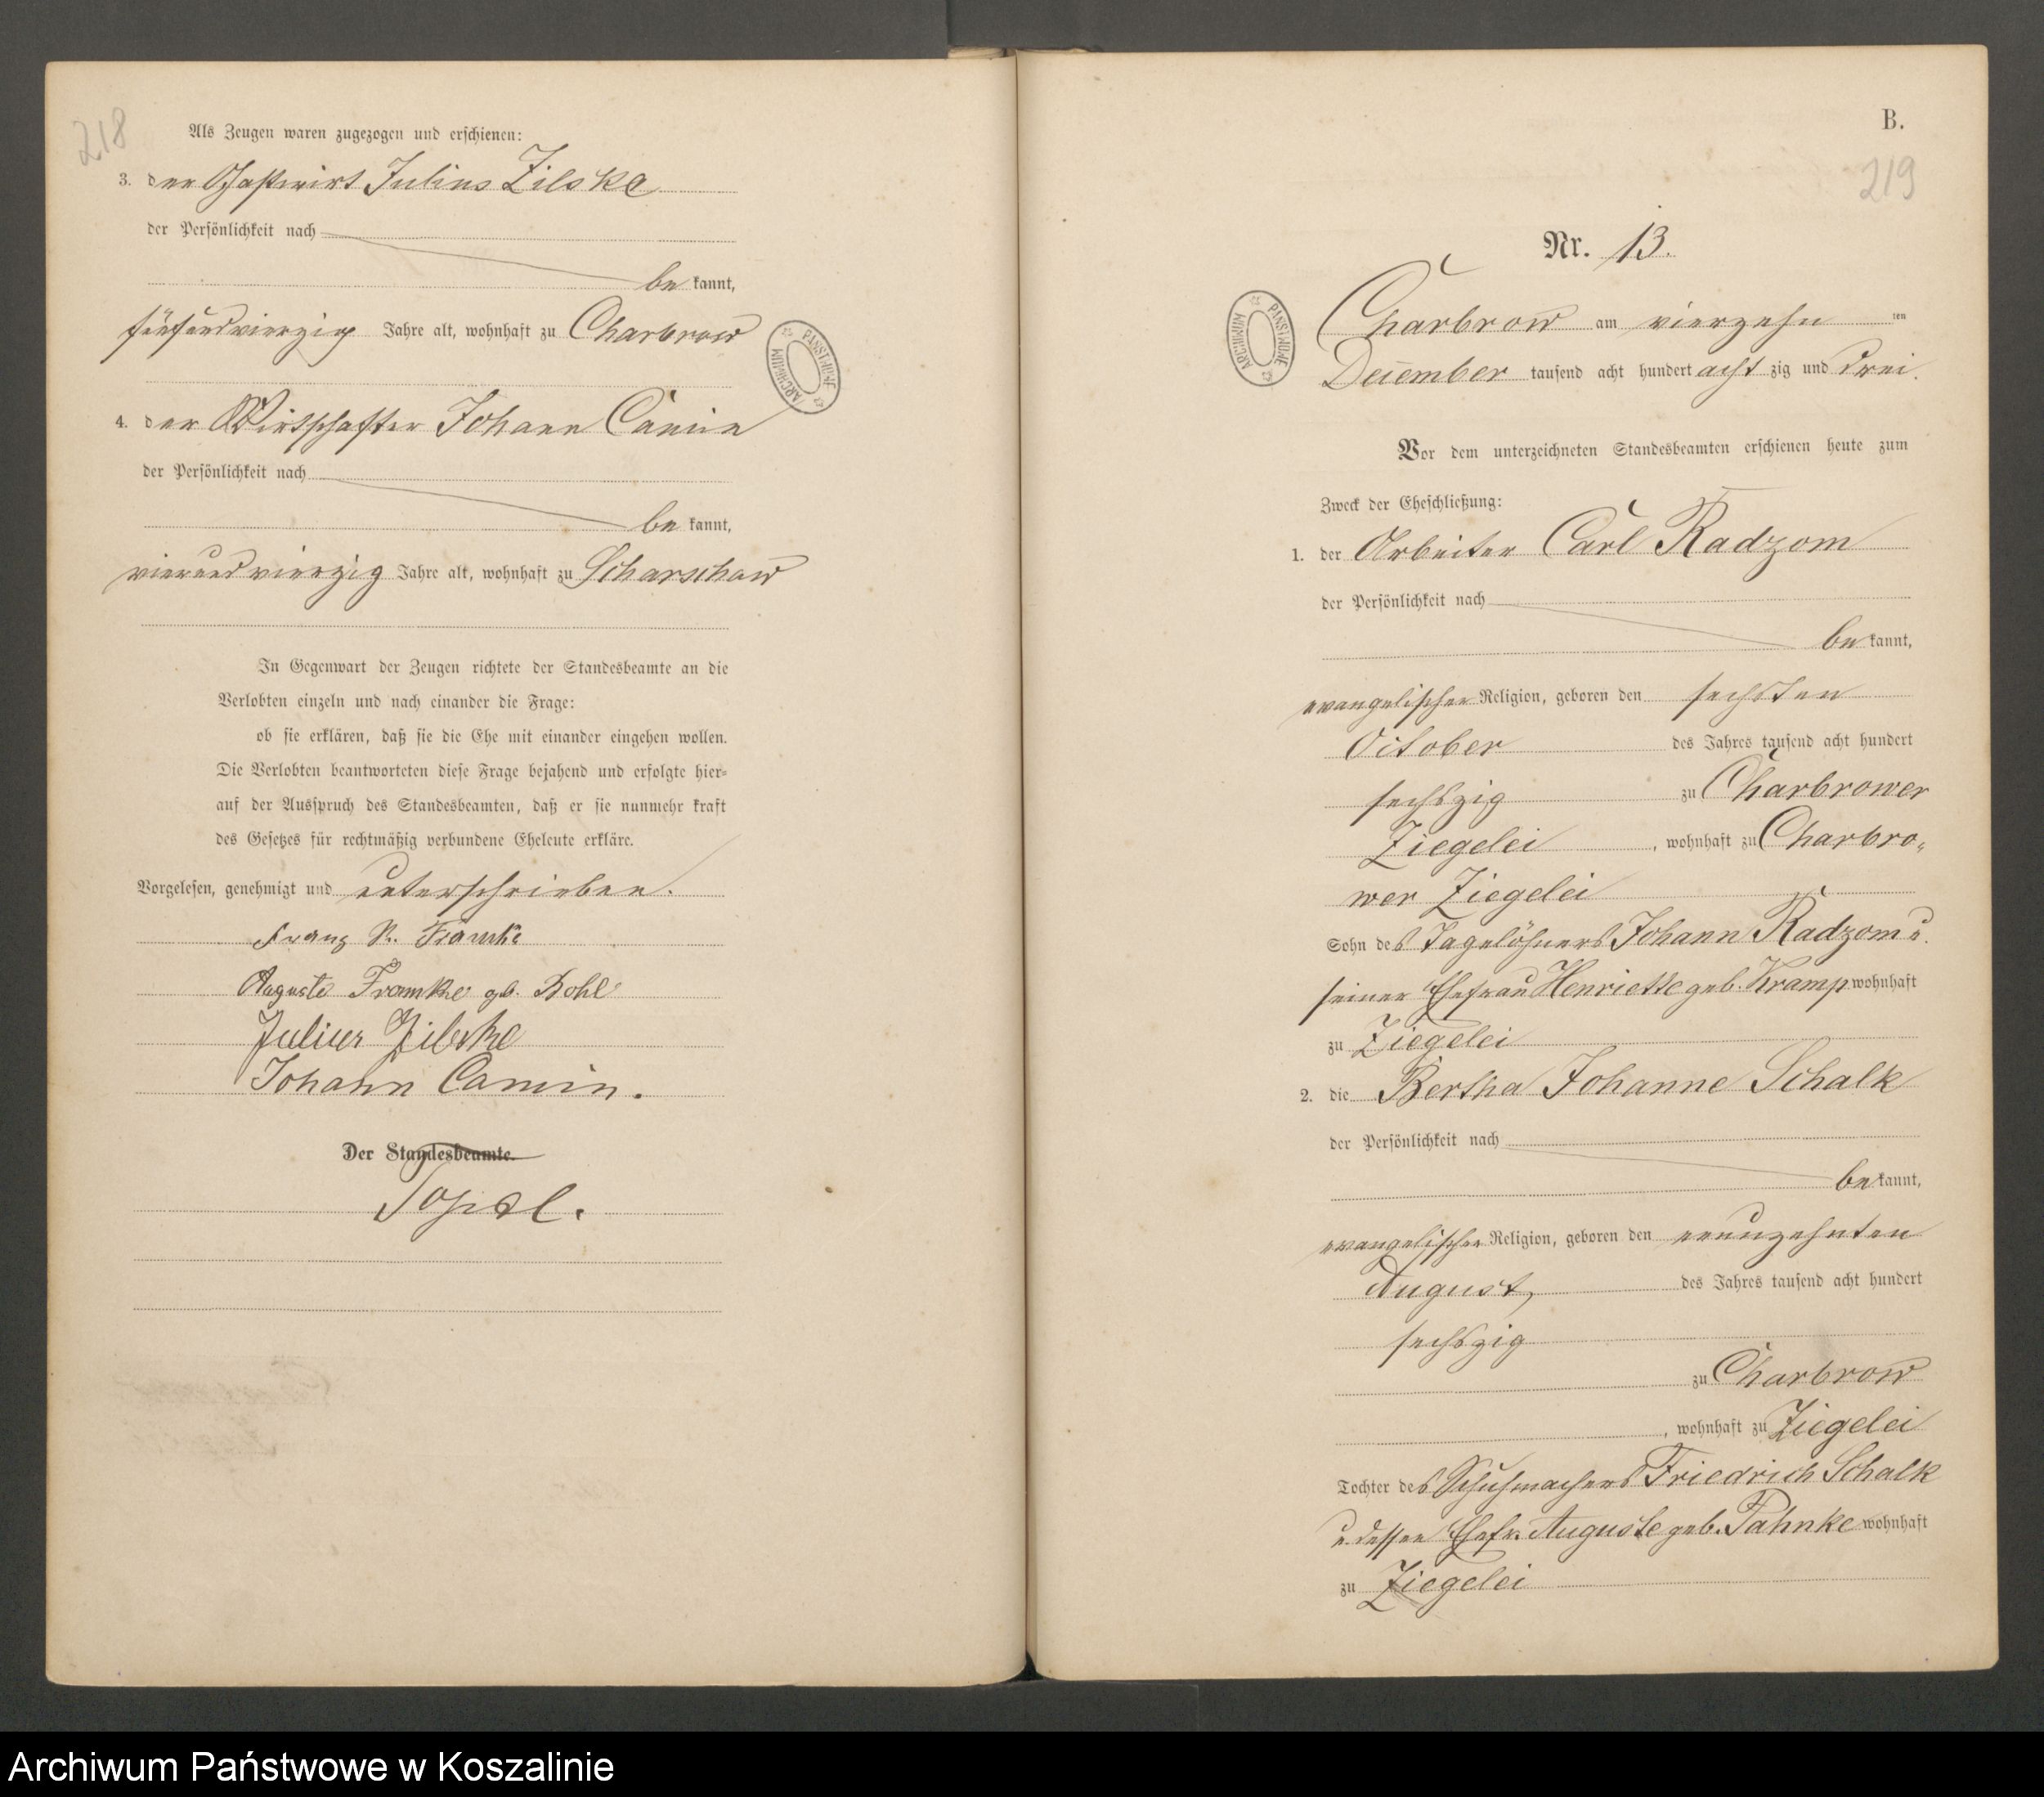 218
Als Zeugen waren zugezogen und erschienen:
3. der Gastwirt Julius Zilske
der Persönlichkeit nach
be kannt,
fünfundvierzig Jahre alt, wohnhaft zu Charbrow
4. der Wirtschafter Johann Camin
der Persönlichkeit nach
be kannt,
vierundvierzig Jahre alt, wohnhaft zu Scharschow
In Gegenwart der Zeugen richtete der Standesbeamte an die
Verlobten einzeln und nach einander die Frage:
ob sie erklären, daß sie die Ehe mit einander eingehen wollen.
Die Verlobten beantworteten diese Frage bejahend und erfolgte hier-
auf der Ausspruch des Standesbeamten, daß er sie nunmehr kraft
des Gesetzes für rechtmäßig verbundene Eheleute erkläre.
Vorgelesen, genehmigt und unterschrieben.
Franz Framke
Auguste Framke gb. Bohl
Julius Zilske
Johann Camin.
Der Standesbeamte.
ARCHIWUM PAŃSTWOWE
B.
219
Nr. 13.
ARCHIWUM PAŃSTWOWE
Charbrow am vierzehn ten
December tausend acht hundert acht zig und drei.
Vor dem unterzeichneten Standesbeamten erschienen heute zum
Zweck der Eheschließung:
1. der Arbeiter Carl Radzom
der Persönlichkeit nach
be kannt,
evangelischer Religion, geboren den sechsten
October des Jahres tausend acht hundert
sechszig zu Charbrower
Ziegelei, wohnhaft zu Charbro-
wer Ziegelei
Sohn des Tagelöhners Johann Radzom u.
seiner Ehefrau Henriette geb. Kramp wohnhaft
zu Ziegelei
2. die Bertha Johanne Schalk
der Persönlichkeit nach
be kannt,
evangelischer Religion, geboren den neunzehnten
August, des Jahres tausend acht hundert
sechszig
zu Charbrow
, wohnhaft zu Ziegelei
Tochter des Schuhmachers Friedrich Schalk
u. dessen Ehefr. Auguste geb. Pahnke wohnhaft
zu Ziegelei
Archiwum Państwowe w Koszalinie